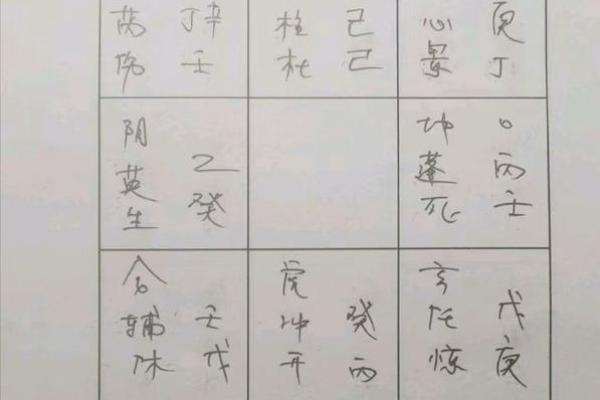 芮 丁辛
伤 壬
柱 己
杜 己
心 庚
景 丁
阴
英 乙
生 癸
地 ○
蓬 丙
死 壬
合
辅 壬
休 戊
虎
冲 癸
开 丙
玄
任 戊
惊 庚